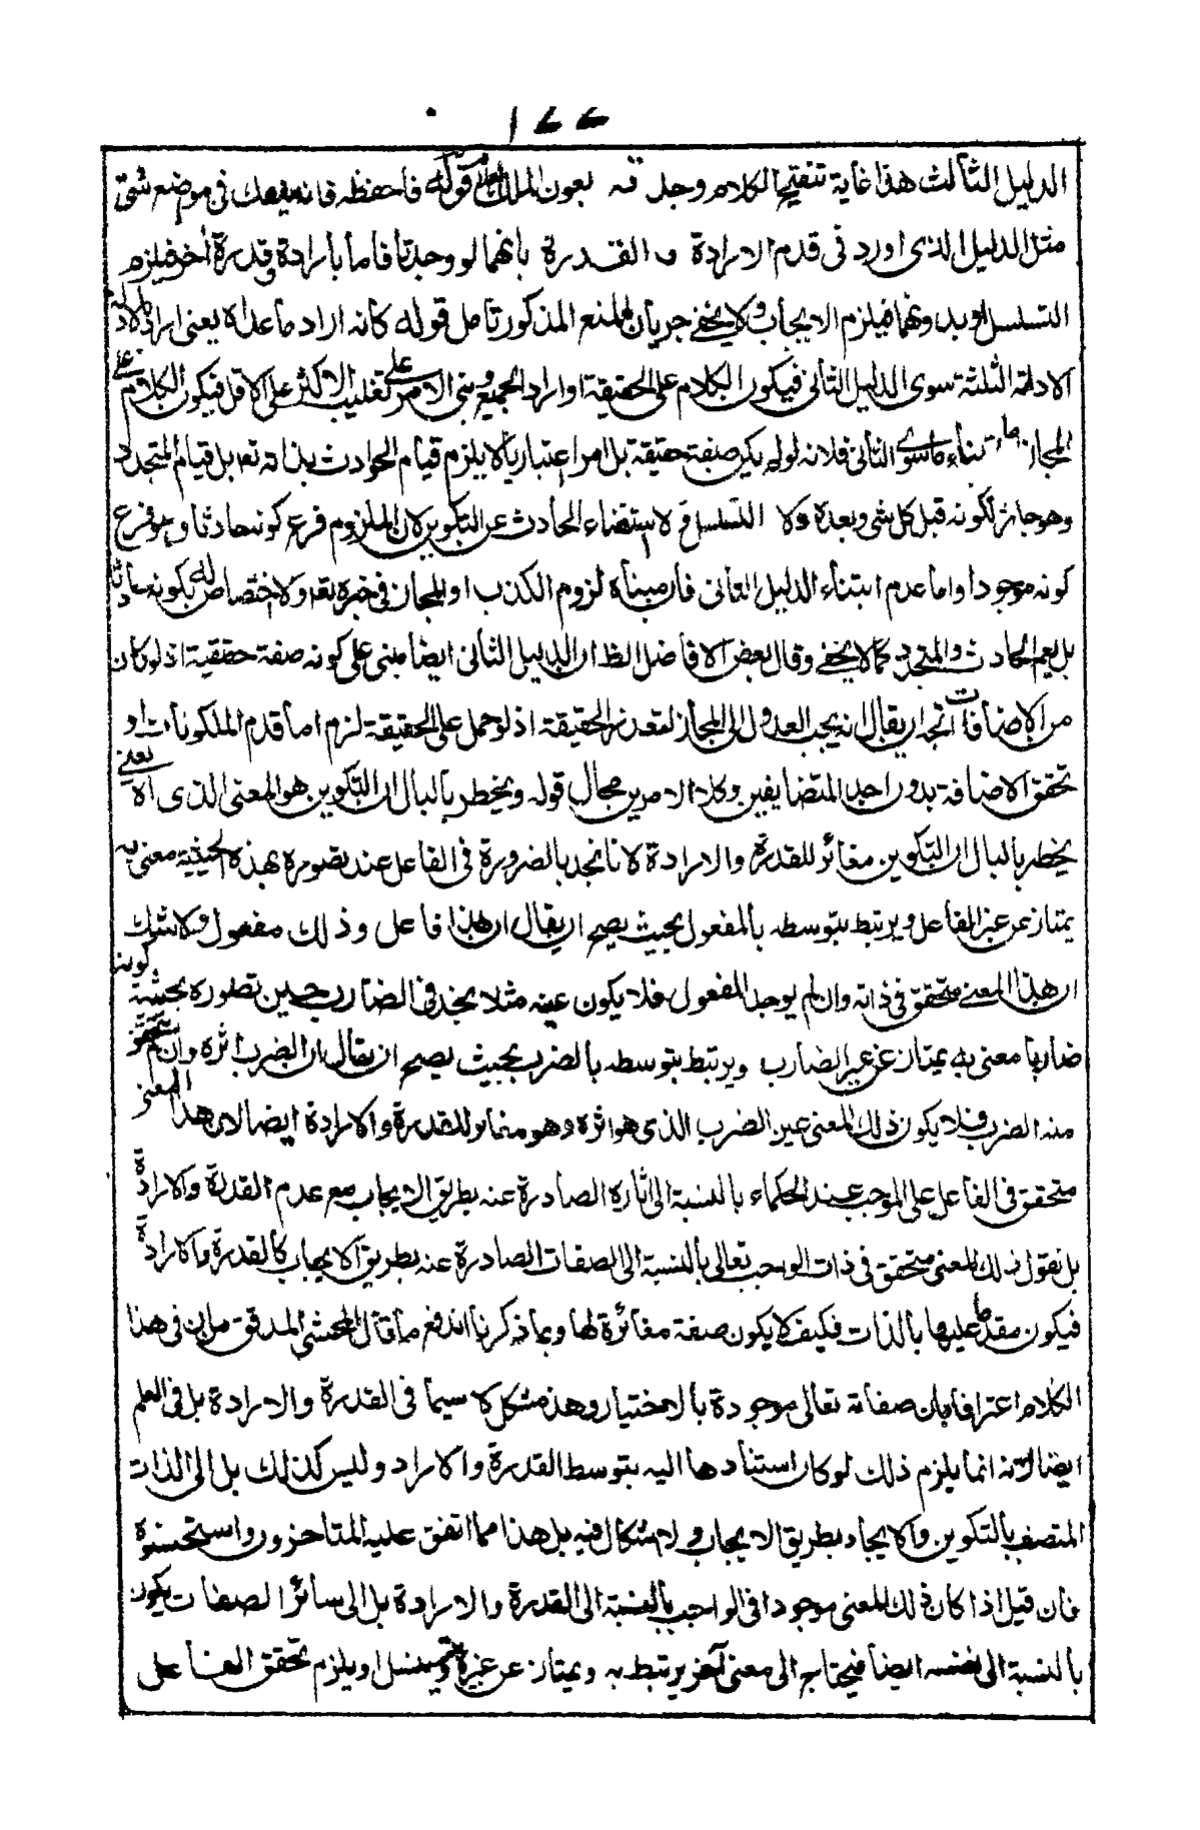 ١٧٧
الدليل الثالث هذا غاية تنقيح الكلام وجل قه بعون الملك العلام قوله فاحفظه فانه ينفعك في موضع شتى
مثل الدليل الذى اورد فى قدم الارادة و القدرة بانهما لو وجدتا فاما بارادة وقدرة أخر فيلزم
التسلسل او بدونهما فيلزم الايجاب ولا يخفے جريان المنع المذكور تامل قوله كانه اراد ما عداه يعنى اراد بالادلة
الادلة الثلثة سوى الدليل الثانى فيكون الكلام على الحقيقة او اراد الجميع وبنى الامر على تغليب الاكثر على الاقل فيكون الكلام على
المجاز اما بناء ما سوى الثانى فلانه لو لم يكن صفة حقيقة بل امرا اعتباريا لا يلزم قيام الحوادث بذاته تعه بل قيام المتجدد
وهو جائز لكونه قبل كل شى وبعده ولا التسلسل لاستدعاء الحادث عن التكوين لان الملزوم فرع كونه حادثا وهو فرع
كونه موجودا واما عدم ابتناء الدليل الثانى فلان مبناه لزوم الكذب او المجاز فى خبره تعه ولا اختصاص له بكونه حادثا
بل يعم الحادث والمتجدد كما لا يخفے وقال بعض الافاضل الظ ان الدليل الثانى ايضا مبنى على كونه صفة حقيقية اذ لو كان
من الاضافات اتجه ان يقال انه يجب العدول الى المجاز لتعذر الحقيقة اذ لو حمل على الحقيقة لزم اما قدم المكونات او
تحقق الاضافة بدون احد المتضايفين وكلا الامرين محال قوله ويخطر بالبال ان التكوين هو المعنى الذى اه يعنى
يخطر بالبال ان التكوين مغائر للقدرة والارادة لانا نجد بالضرورة فى الفاعل عند تصوره بهذه الحيثية معنى به
يمتاز عن غير الفاعل ويرتبط بتوسطه بالمفعول بحيث يصح ان يقال ان هذا فاعل وذلك مفعول ولا شك
ان هذا المعنى متحقق فى ذاته وان لم يوجد المفعول فلا يكون عينه مثلا نجد فى الضارب حين تصوره بحيثية كونه
ضاربا معنى به يمتاز عن غير الضارب ويرتبط بتوسطه بالضرب بحيث يصح ان يقال ان الضرب اثره وان لم يتحقق
منه الضرب فلا يكون ذلك المعنى عين الضرب الذى هو اثره وهو مغائر للقدرة والارادة ايضا لان هذا المعنى
متحقق فى الفاعل على الموجب عند الحكماء بالنسبة الى اثاره الصادرة عنه بطريق الايجاب مع عدم القدرة والارادة
بل نقول ذلك المعنى متحقق فى ذات الواجب تعالى بالنسبة الى الصفات الصادرة عنه بطريق الايجاب كالقدرة والارادة
فيكون مقدما عليها بالذات فكيف لا يكون صفة مغائرة لها وبما ذكرنا اندفع ما قال المحشى المدقق من ان فى هذا
الكلام اعترافا بان صفاته تعالى موجودة بالاختيار وهذا مشكل لا سيما فى القدرة والارادة بل فى العلم
ايضا لانه انما يلزم ذلك لو كان استنادها اليه بتوسط القدرة والاراد وليس كذلك بل الى الذات
المتصف بالتكوين والايجاد بطريق الايجاب ولا اشكال فيه بل هذا مما اتفق عليه المتاخرون واستحسنوه
فان قيل اذا كان ذلك المعنى موجودا فى الواجب بالنسبة الى القدرة والارادة بل الى سائر الصفات يكون
بالنسبة الى نفسه ايضا فيحتاج الى معنى آخر يرتبط به ويمتاز عن غيره ويتسلسل او يلزم تحقق الفاعل